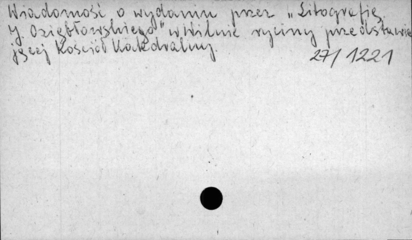 Wiadomość o wydaniu przez „Litografię
J. Oziębłowskiego" w Wilnie ryciny przedstawia
jącej Kościół Katedralny.
27/1221